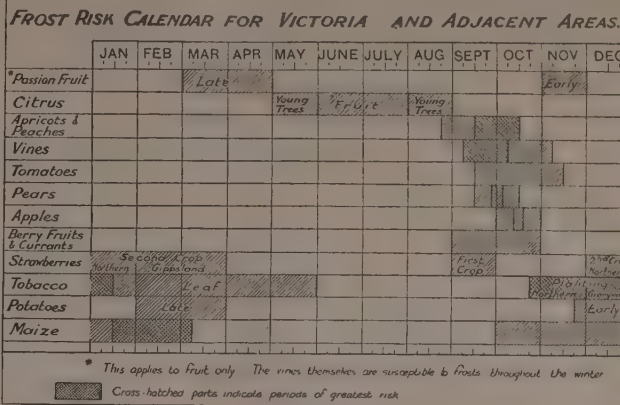 FROST RISK CALENDAR FOR VICTORIA AND ADJACENT AREAS.
JAN FEB MAR APR MAY JUNE JULY AUG SEPT OCT NOV DEC
*Passion Fruit Late Early
Citrus Young Trees Fruit Young Trees
Apricots & Peaches
Vines
Tomatoes
Pears
Apples
Berry Fruits & Currants
Strawberries Second Crop Northern Gippsland First Crop
Tobacco Leaf Northern
Potatoes Late Early
Maize
* This applies to fruit only The vines themselves are susceptible to frosts throughout the winter
Cross-hatched parts indicate periods of greatest risk